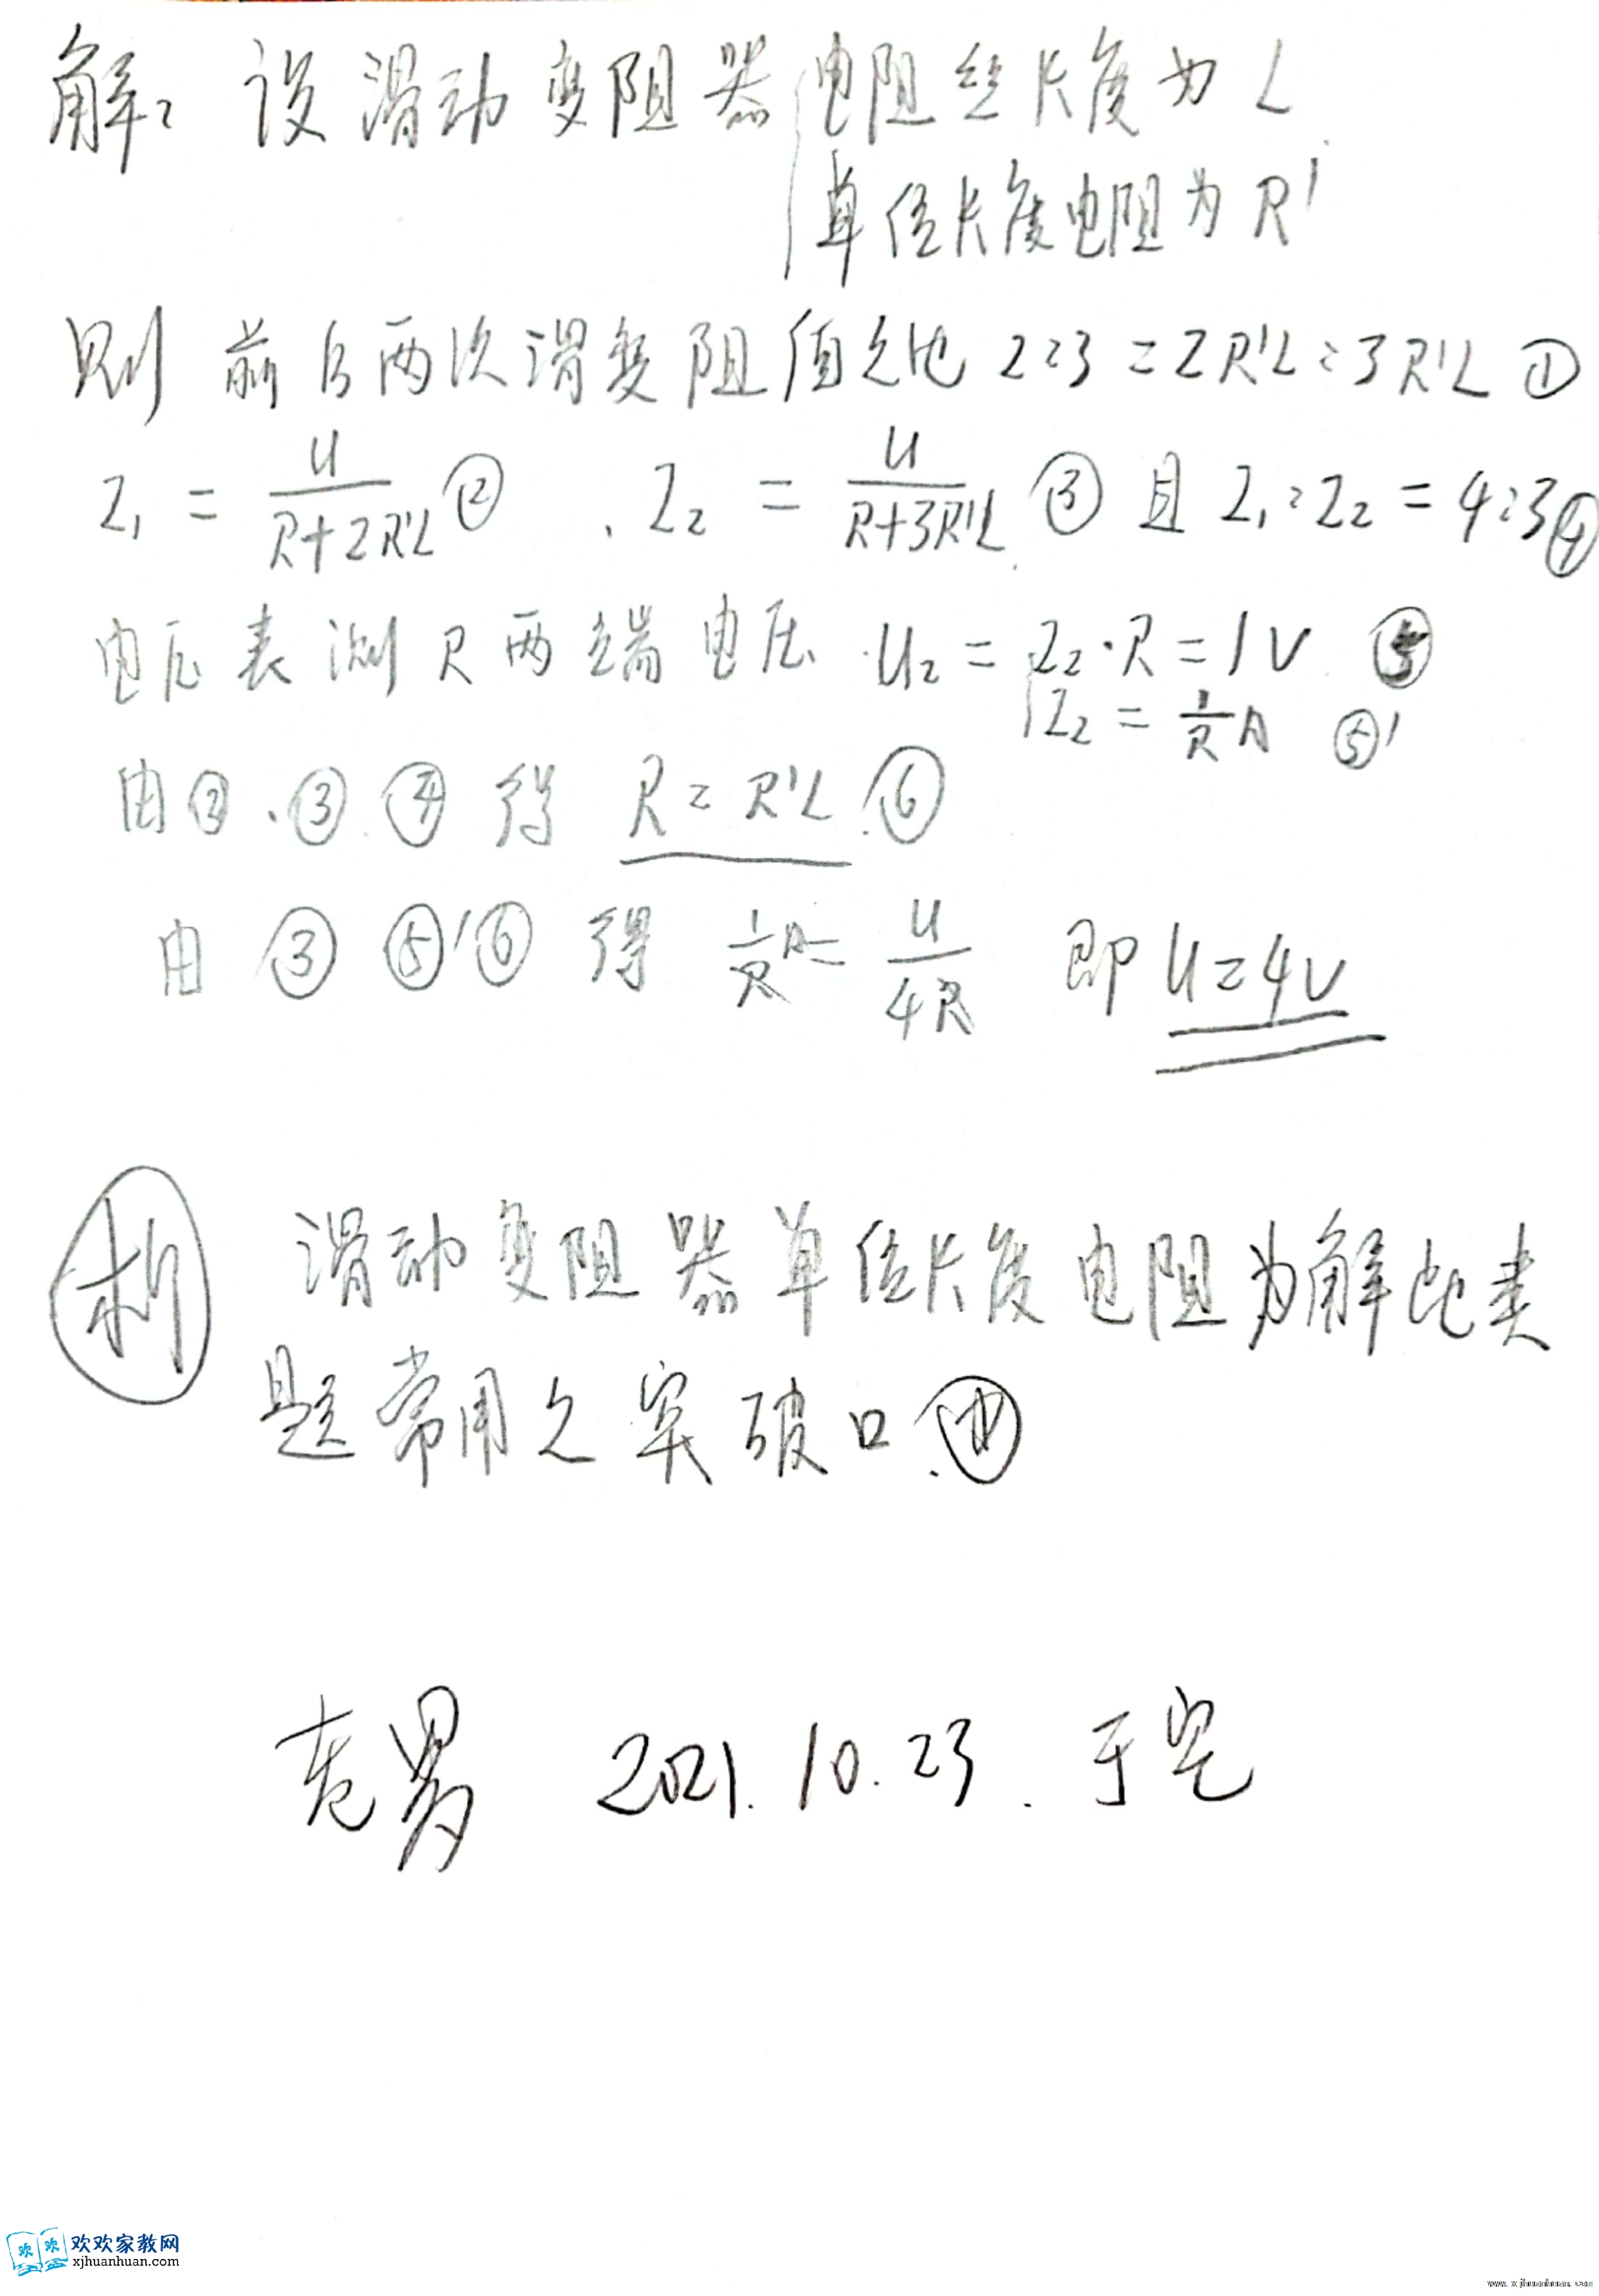 解：设滑动变阻器电阻丝长度为L
单位长度电阻为R'
则前后两次滑变阻值之比 2:3=2R'L:3R'L ①
I₁ = U/(R+2R'L) ② 、I₂ = U/(R+3R'L) ③ 且 I₁:I₂ = 4:3 ④
电压表测R两端电压 U₂ = I₂·R = 1V ⑤
I₂ = 1/R A ⑤'
由②、③④得 R=R'L ⑥
由③⑤'⑥得 1/R A = U/4R 即 U=4V
析 滑动变阻器单位长度电阻为解此类
题常用之突破口.
2021.10.23. 于宅
欢欢家教网
xjhuanhuan.com